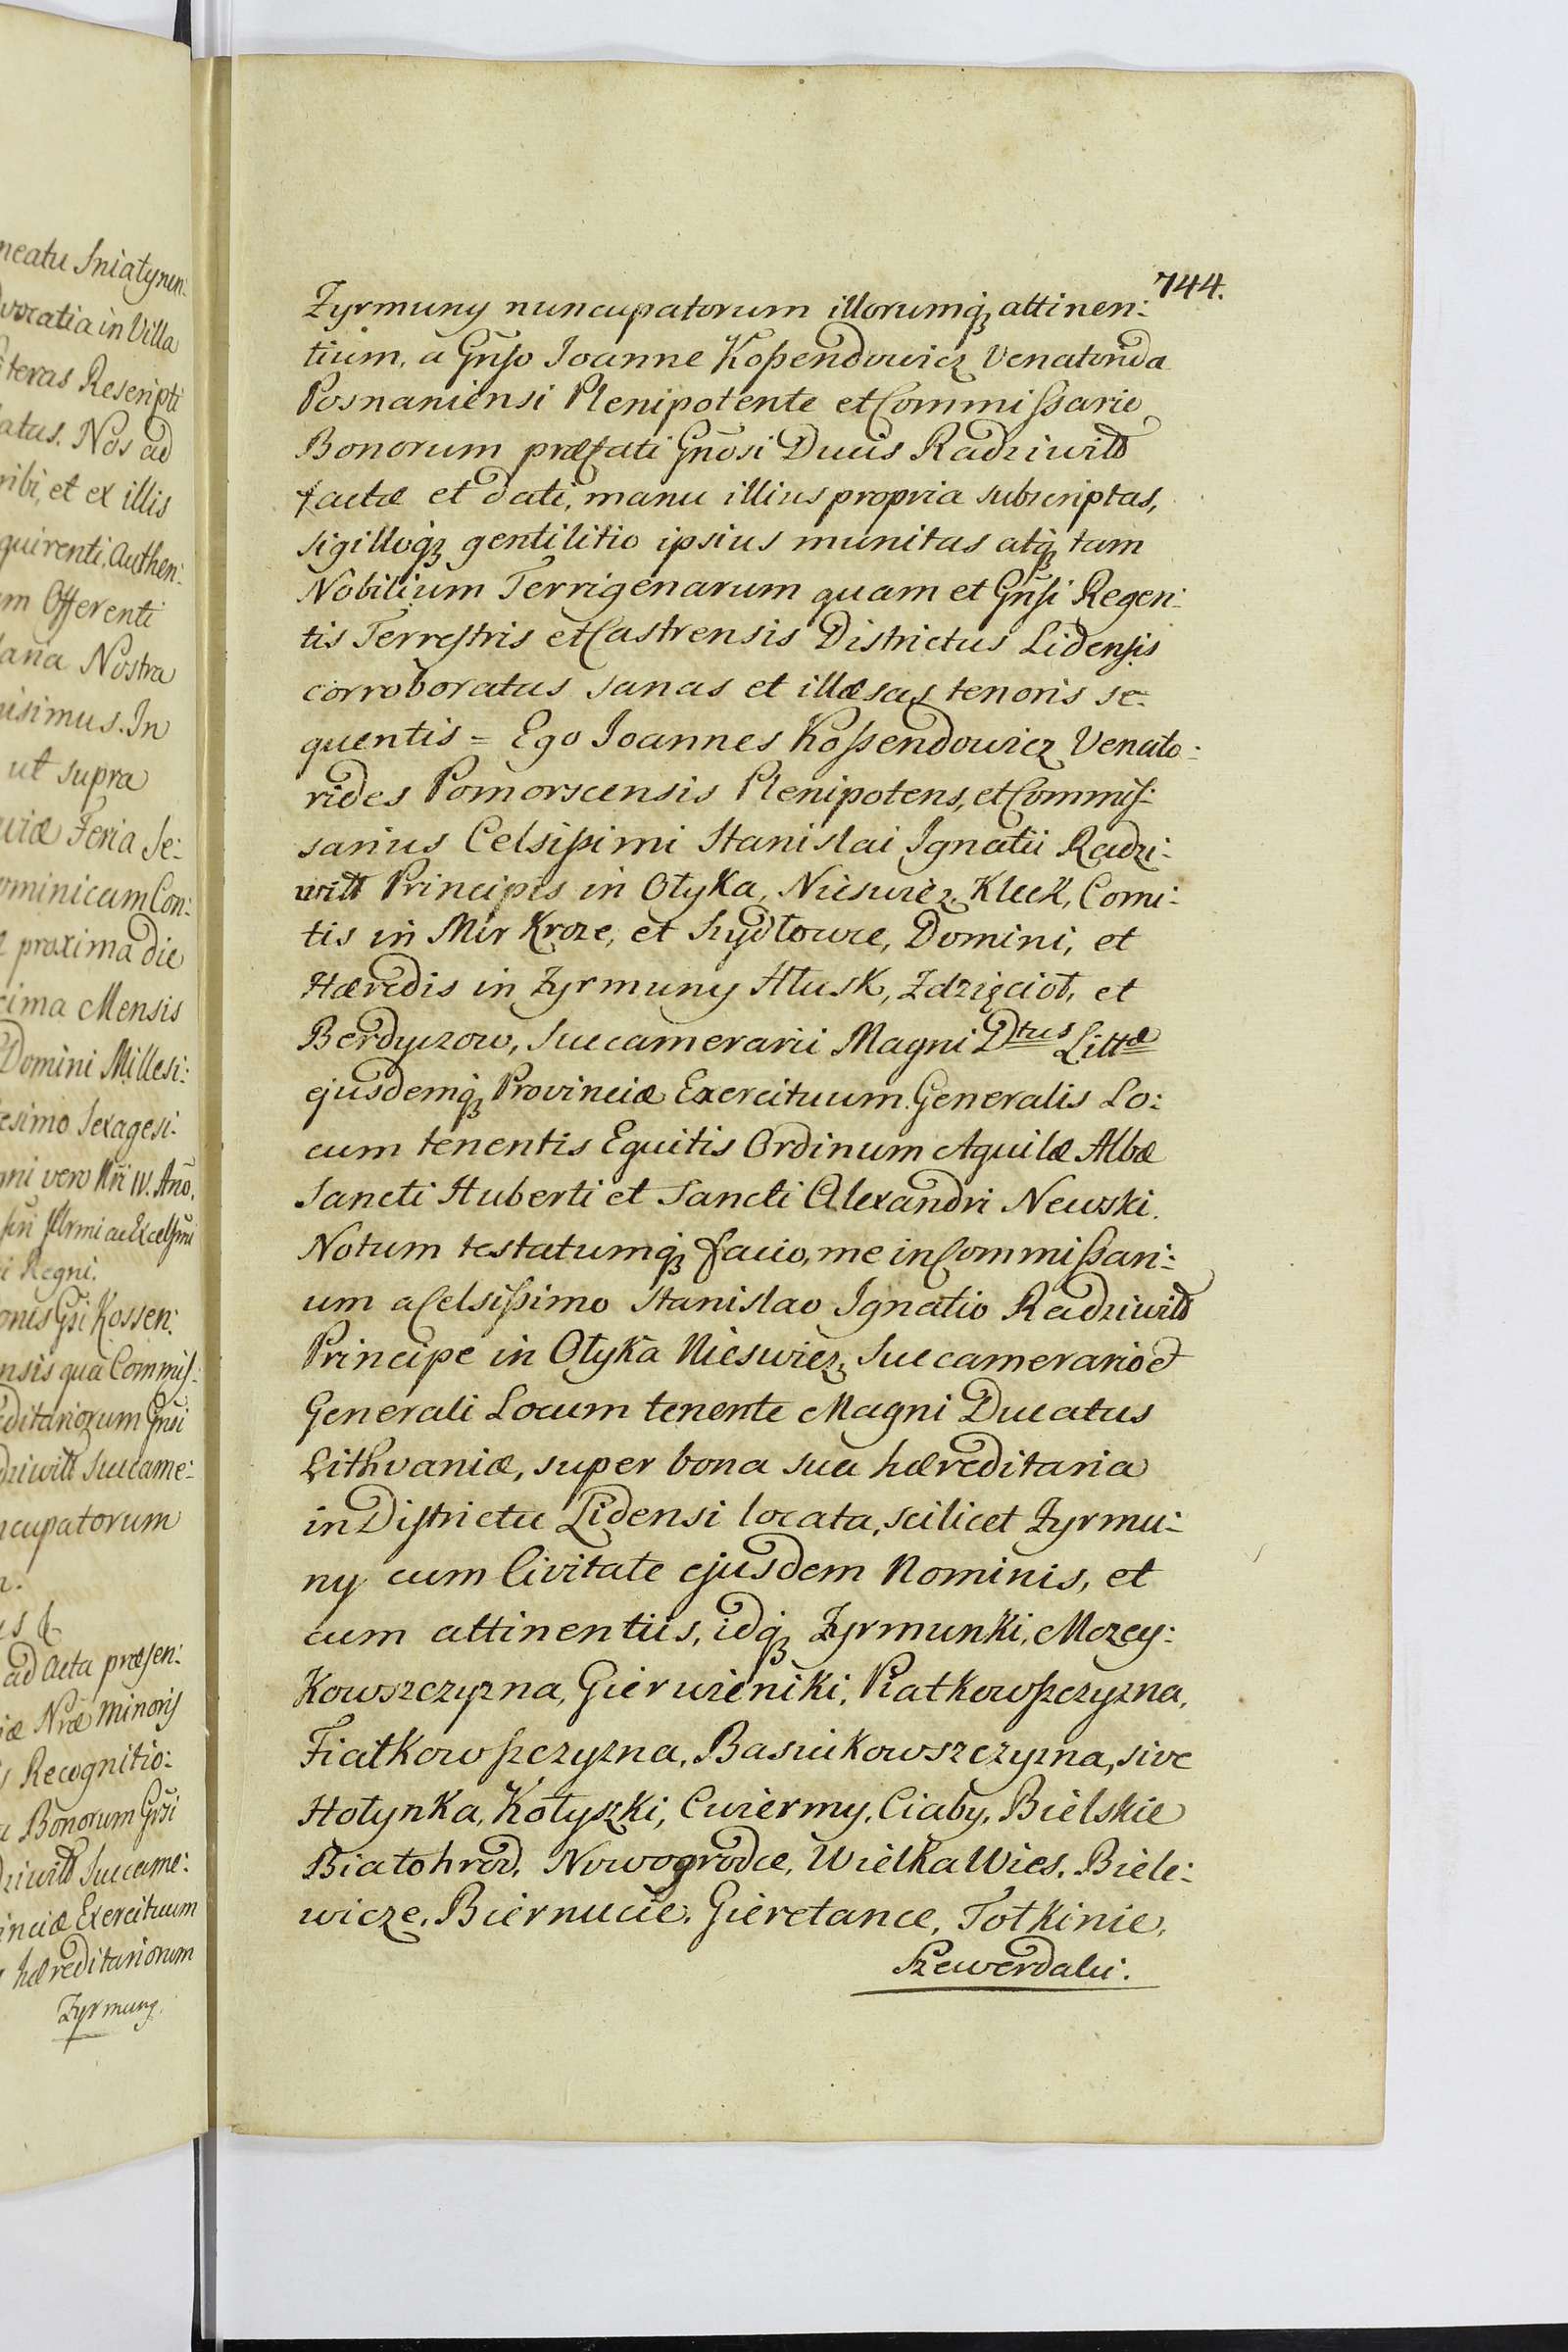 neatu Sniatynen:
vocatia in Villa
iteras Rescripti
atus. Nos ad
ribi, et ex illis
quirenti, Authen:
m Offerenti
ana Nostra
uisimus. In
ut supra
viæ Feria Se:
ominicam Con:
proxima die
cima Mensis
Domini Millesi:
esimo Sexagesi:
mi vero Nri IV. Año.
i Regni.
onis Gsi Kossen:
nsis qua Commis:
editariorum Gnsi
dziwiłł Succame:
ncupatorum
ad Acta præsen:
iæ Nræ Minoris
Recognitio:
a Bonorum Gnsi
dziwiłł Succame:
inciæ Exercituum
hæreditariorum
Zyrmuny.
744.
Zyrmuny nuncupatorum illorumq; attinen:
tium, a Gnso Ioanne Kossendowicz Venatorida
Posnaniensi Plenipotente et Commissario
Bonorum præfati Gnosi Ducis Radziwiłł
factæ et dati, manu illius propria subscriptas,
sigilloq; gentilitio ipsius munitas atq; tam
Nobilium Terrigenarum quam et Gnsi Regen:
tis Terrestris et Castrensis Districtus Lidensis
corroboratas sanas et illæsas tenoris se:
quentis = Ego Ioannes Kossendowicz Venato:
rides Pomorscensis Plenipotens, et Commis:
sarius Celsissimi Stanislai Ignatii Radzi:
wiłł Principis in Ołyka, Nieswiez, Kleck, Comi:
tis in Mir Kroze, et Szydłowce, Domini, et
Hæredis in Zyrmuny Hłusk, Zdzięcioł, et
Berdyczow, Succamerarii Magni Dtus Littæ
ejusdemq; Provinciæ Exercituum Generalis Lo:
cum tenentis Equitis Ordinum Aquilæ Albæ
Sancti Huberti et Sancti Alexandri Newski.
Notum testatumq; facio, me in Commissari:
um a Celsissimo Stanislao Ignatio Radziwiłł
Principe in Ołyka Nieswiez, Succamerario et
Generali Locum tenente Magni Ducatus
Lithvaniæ, super bona sua hæreditaria
in Districtu Lidensi locata, scilicet Zyrmu:
ny cum Civitate ejusdem Nominis, et
cum attinentiis, idq; Zyrmunki, Mozey:
Kowszczyzna, Gierwieniki, Piatkowszczyzna,
Fiałkowszczyzna, Basiukowszczyzna, sive
Hołynka, Kołyszki, Cwiermy, Ciaby, Bielskie
Białohrod, Nowogrodce, Wielka Wies, Biele:
wicze, Biernucie, Gieretance, Tołkinie,
Szewerdaki.